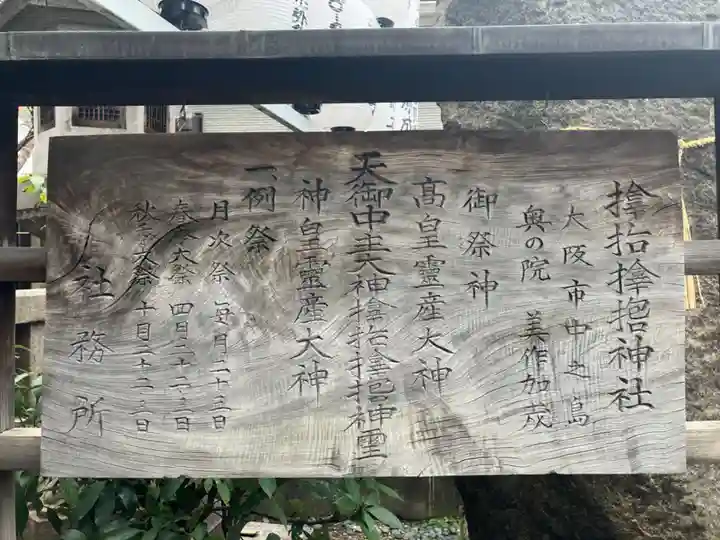 𪮷抬𪮷𫝼神社
大阪市中之島
奥の院 美作加茂
御祭神
高皇靈産大神
天御中主大神𪮷抬𪮷𫝼神霊
神皇靈産大神
一、例祭
月次祭 毎月二十三日
春季大祭 四月二十二・三日
秋季大祭 十月二十二・三日
社務所